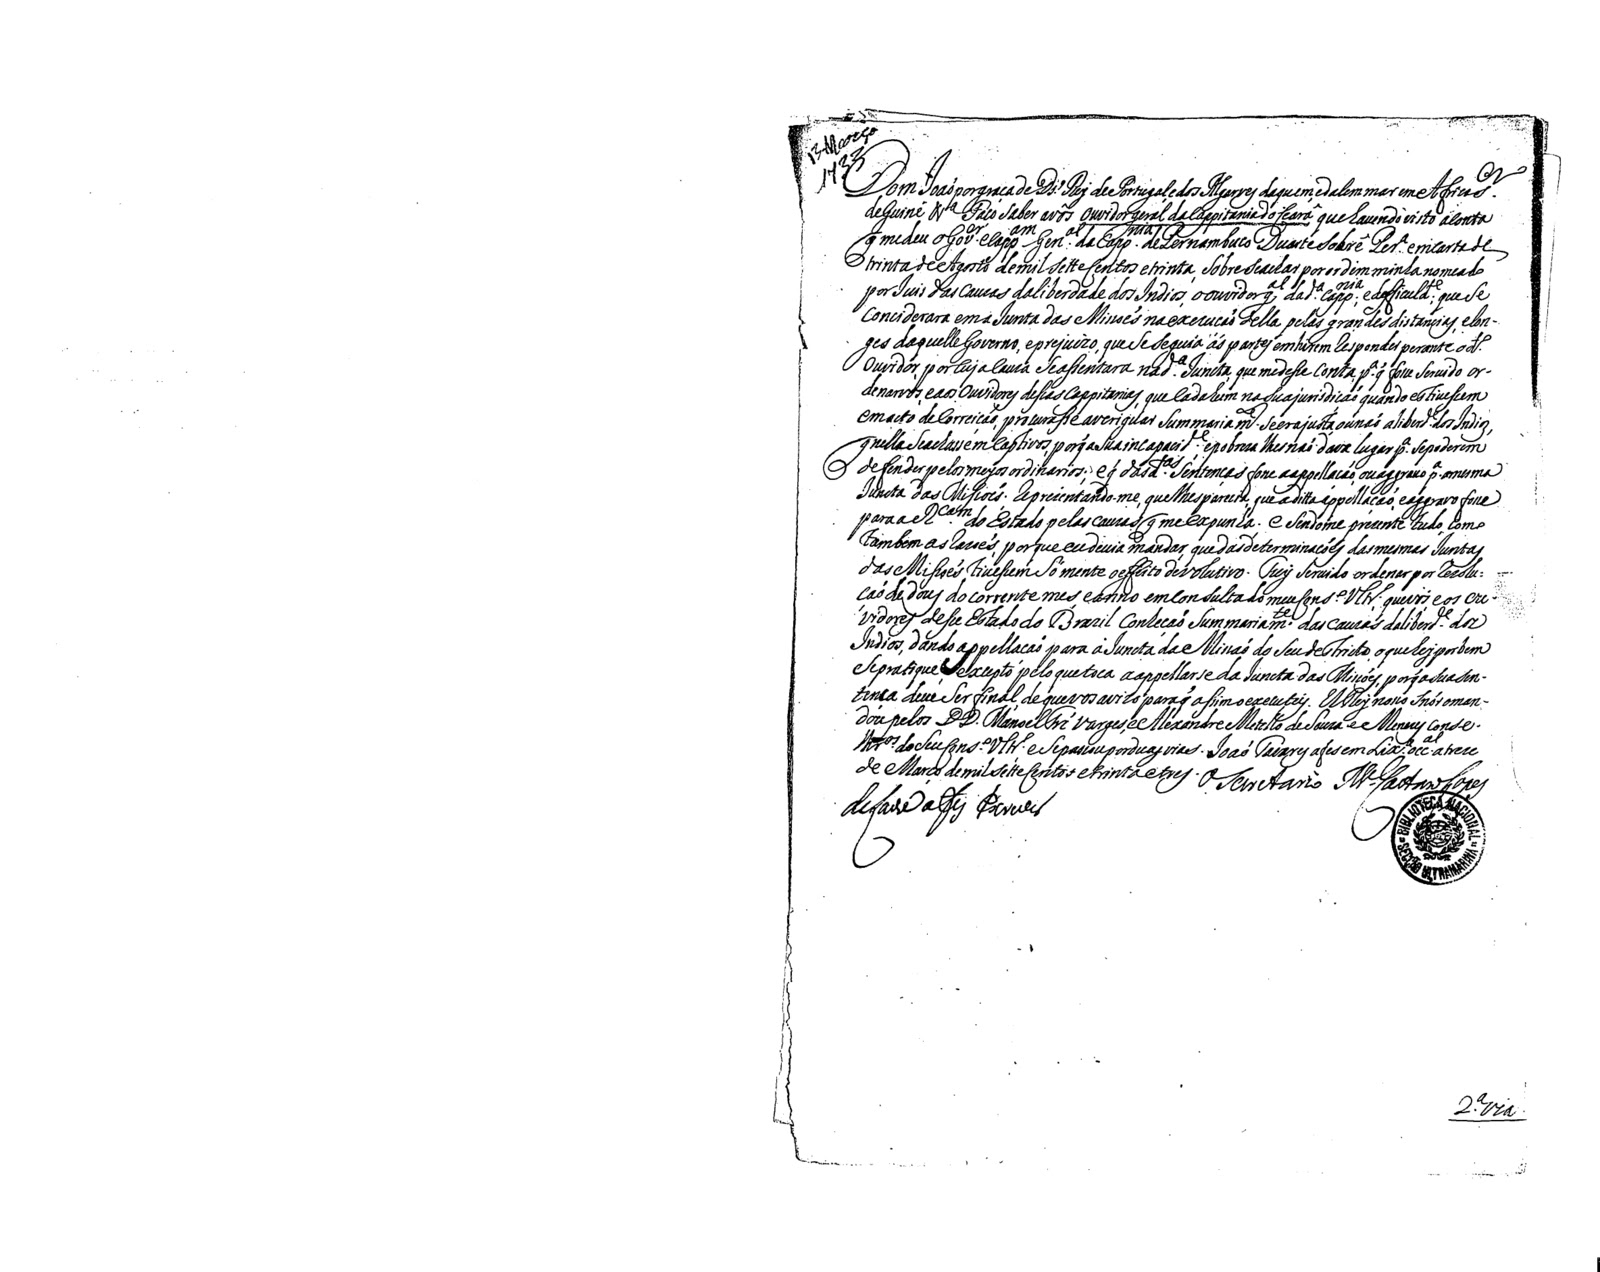 13 Março
1733
Dom João por graça de Ds. Rey de Portugal e dos Algarves daquem, e dalem mar em Africa Sr.
de Guiné &ª Faço saber a vós Ouvidor geral da Cappitania do Seará, que havendo visto a conta
q̃ me deu o Govor. e Cappam. Genal. da Cappnia. de Pernambuco Duarte Sobré Perª. em carta de
trinta de Agosto de mil sette centos e trinta, sobre se achar por ordem minha nomeado
por Juis das Cauzas da liberdade dos Indios, o ouvidor gal. da dª. Cappnia., e dificuldte. que se
Considerara em a Junta das Missoés na execução della pelas grandes distancias, e lon-
ges daquelle Governo, e prejuizo, que se seguia ás partes em hirem responder perante o dº.
Ouvidor, por cuja cauza se assentara na dª. Juncta, que me desse conta, pª. q̃ fosse servido or-
denarvos, e aos Ouvidores dessas Cappitanias, que cada hum na sua jurisdição quando estivessem
em acto de Correição, procurasse averiguar summariamte. se era justa ou não a liberde. dos Indios,
q̃ nella se achassem captivos, porq̃ a sua incapacide. e pobreza lhes não dava lugar pª. se poderem
defender pelos meyos ordinarios; e q̃ das dtas. sentenças fosse a appellação, ou aggravo pª. a mesma
Juncta das Missoés. Reprezentando-me, que lhes parecia, que a ditta appellação, e aggravo fosse
para a Rcam. do Estado pelas cauzas q̃ me expunha. E sendome prezente tudo, como
tambem as razoés, porque eu devia mandar, que das determinações das mesmas Juntas
das Missoés tivessem somente o effeito devolutivo. Fuy servido ordenar por rezolu-
ção de dous do corrente mes e anno em consulta do meu Consº. Ultrº. que vós e os ou-
vidores desse Estado do Brazil conheção summariamte. das cauzas da liberde. dos
Indios, dando appellação para a Juncta da Missão do seu destricto, o que hey por bem
se pratique excepto pelo que toca a appellarse da Juncta das Missoés, porq̃ a sua sen-
tença deve ser final, de que vos avizo para q̃ assim o executeis. El Rey nosso Snõr o man-
dou pelos DD. Manoel Frz Vargas, e Alexandre Metello de Souza e Menezes Conse-
lhros. do seu Consº. Ultrº. e se passou por duas vias. João Tavares a fes em Lixª. occal. a treze
de Março de mil sette centos e trinta e tres. O Secretario Ml. Caetano Lopes
de Lavre a fis escrever
BIBLIOTECA NACIONAL
SECÇÃO ULTRAMARINA
2.ª via.